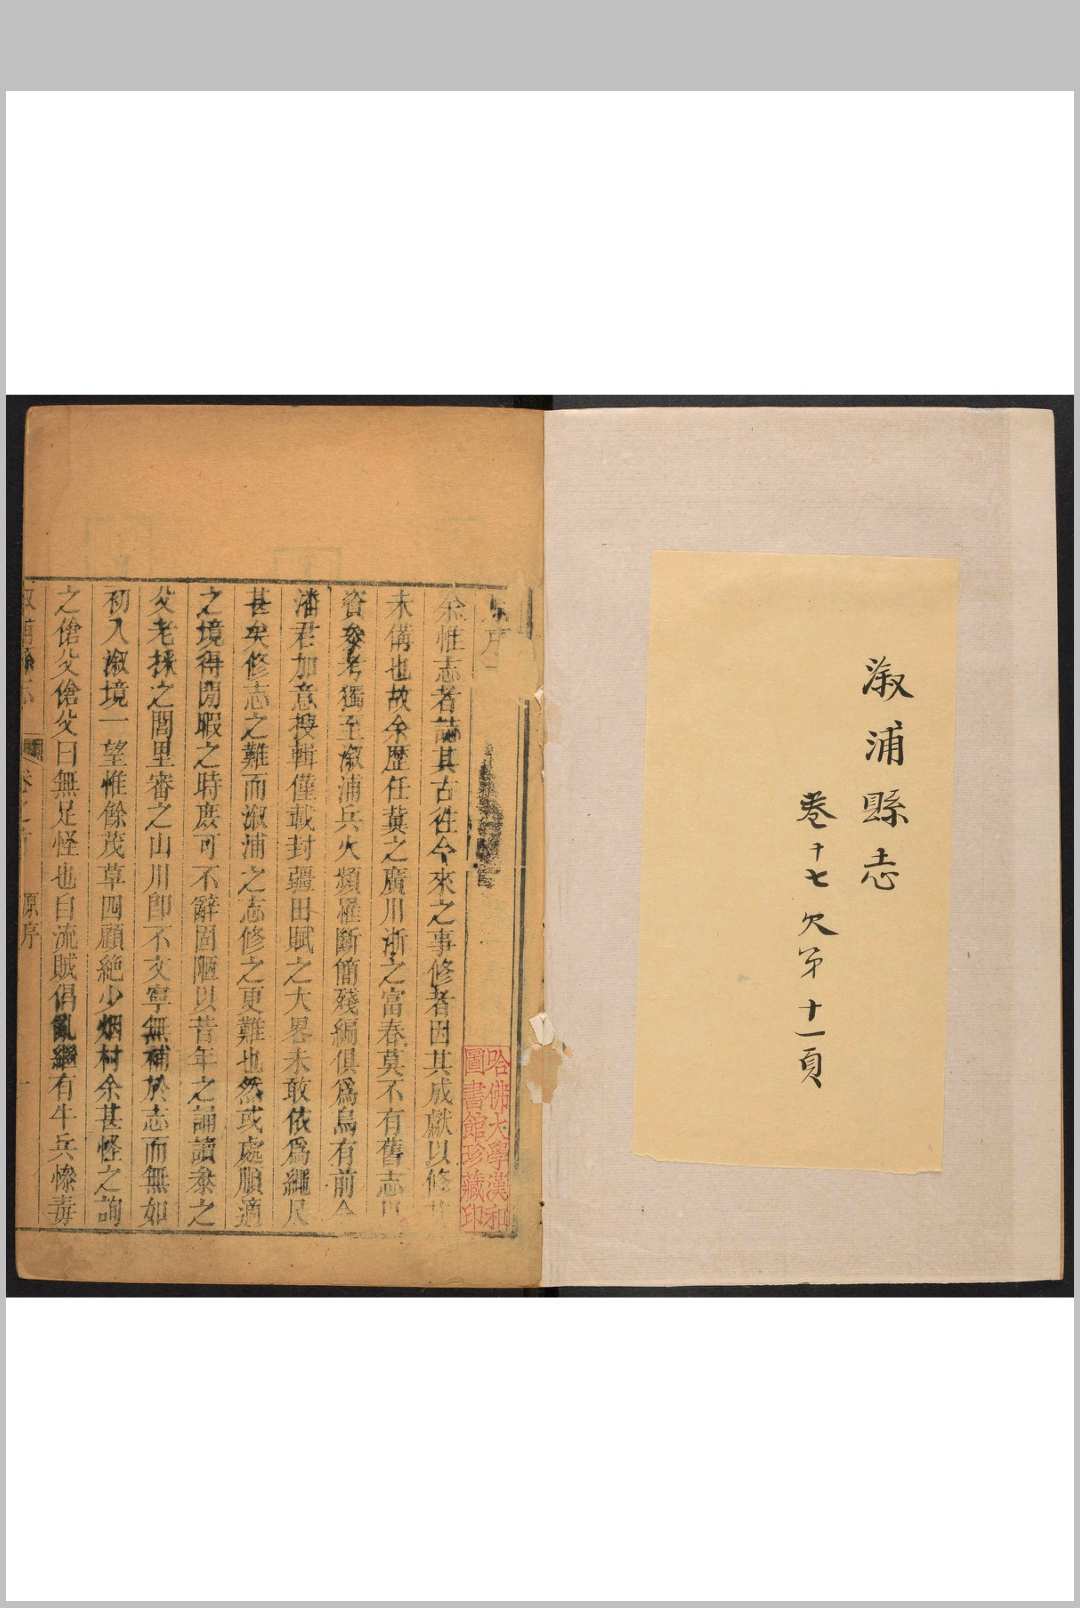 溆浦縣志
卷十七欠第十一頁
哈佛大學漢和
圖書館珍藏印
序
余惟志者誌其古往今來之事修者因其成獻以修
未備也故余歷任冀之廣川浙之富春莫不有舊志
資參考獨至溆浦兵火頻罹斷簡殘編俱爲烏有前令
潘君加意搜輯僅載封疆田賦之大畧未敢依爲繩尺
甚矣修志之難而溆浦之志修之更難也然或處順適
之境得閒暇之時庶可不辭固陋以昔年之誦讀叅之
父老採之閭里審之山川卽不文寧無補於志而無如
初入溆境一望惟餘茂草四顧絶少烟村余甚怪之詢
之傖父傖父曰無足怪也自流賊倡亂繼有牛兵慘毒
溆浦縣志 卷之首 原序 一